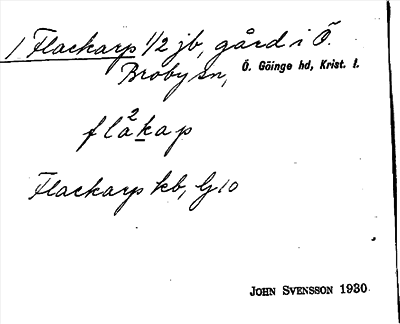 1 Flackarp 1/2 jb, gård i Ö.
Broby sn, Ö. Göinge hd, Krist. l.
fla²kap
Flackarp kb, G 10
JOHN SVENSSON 1930.